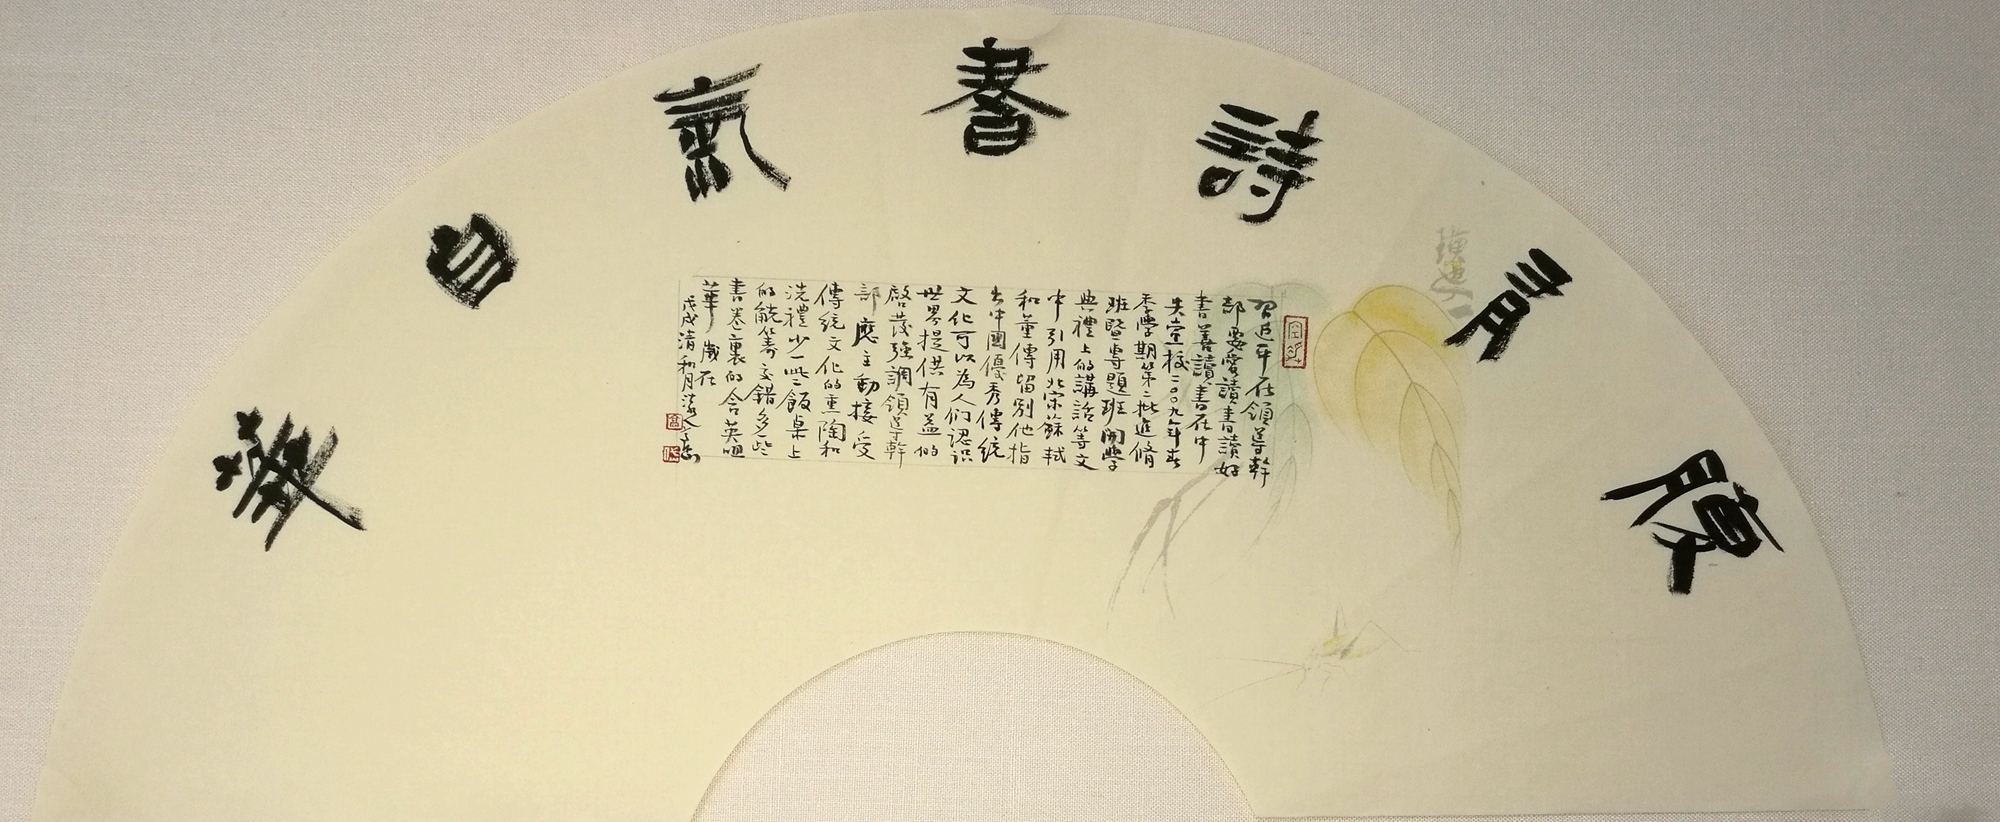 腹有詩書氣自華
習近平在領導幹
部要愛讀書讀好
書善讀書在中
央黨校二〇〇九年春
季學期第二批進修
班暨專題班開學
典禮上的講話等文
中引用北宋蘇軾
和董傳留别他指
出中國優秀傳統
文化可以為人们認识
世界提供有益的
啓发強調領導幹
部應主動接受
傳統文化的熏陶和
洗禮少一些飯桌上
的觥籌交錯多些
書卷裏的含英咀
華歲在
戊戌清和月